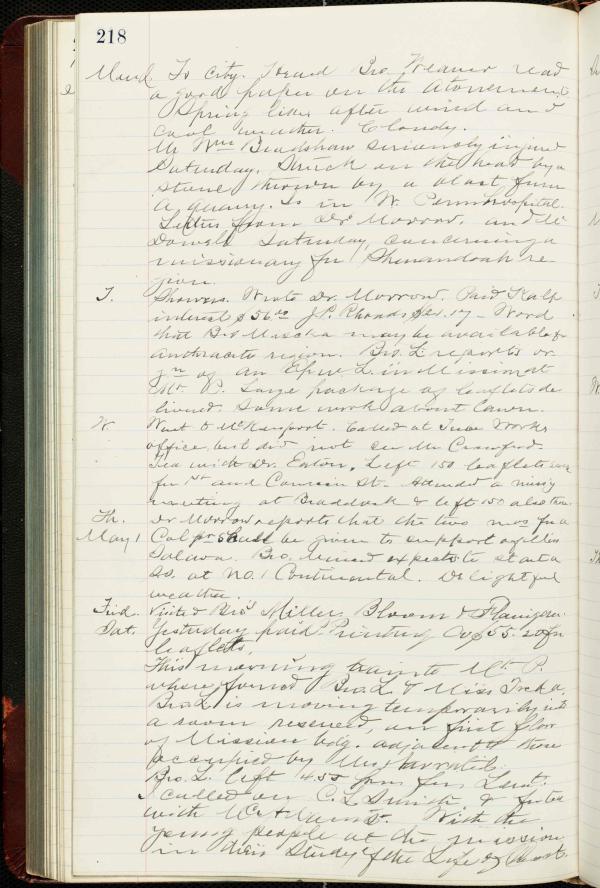 218
Mond. To city. Heard Bro. Weaver read
a good paper on the Atonement.
Spring like after wind and
cool weather. Cloudy.
Mr Wm Bradshaw seriously injured
Saturday. Struck on the head by a
stone thrown by a blast from
a quarry. Is in W. Penn Hospital.
Letters from Dr Morrow, and Mc
Dowell Saturday, concerning a
missionary for Shenandoah re
gion.
T. Showers. Wrote Dr. Morrow. Paid Kalp
interest $56 J.P. Rhoads 17 - Word
that Bro may be available for
Anthracite region. Bro. L. reports or
gn of an Epw L. in Mission at
Mt. P. Large package of leaflets de
livered. Some work about lawn.
W. Went to McKeesport. Called at Tube Works
office, but did not see Mr Crawford.
Tea with Dr. Eaton, Left 150 leaflets
for 1st and St. Attended a missy
meeting at Braddock & left 150 also there.
Th. Dr Morrow reports that the two mos for a
May 1 Col pr shall be given to support
Bro. expects to start a
S.S. at No. 1 Continental. Delightful
weather.
Frid. Visited Bros Miller, Bloom & Flanigan.
Sat. Yesterday paid Printing Co $55. for
leaflets.
This morning train to Mt. P.
where found Bro. L. & Miss
Bro. L. is moving temporarily into
a room reserved, on first floor
of Mission bldg. adjacent to those
occupied by Miss
Bro. L. left 4.55 pm for
I called on C. L. &
with With the
young people at the mission
in their Study of the Life of Christ.